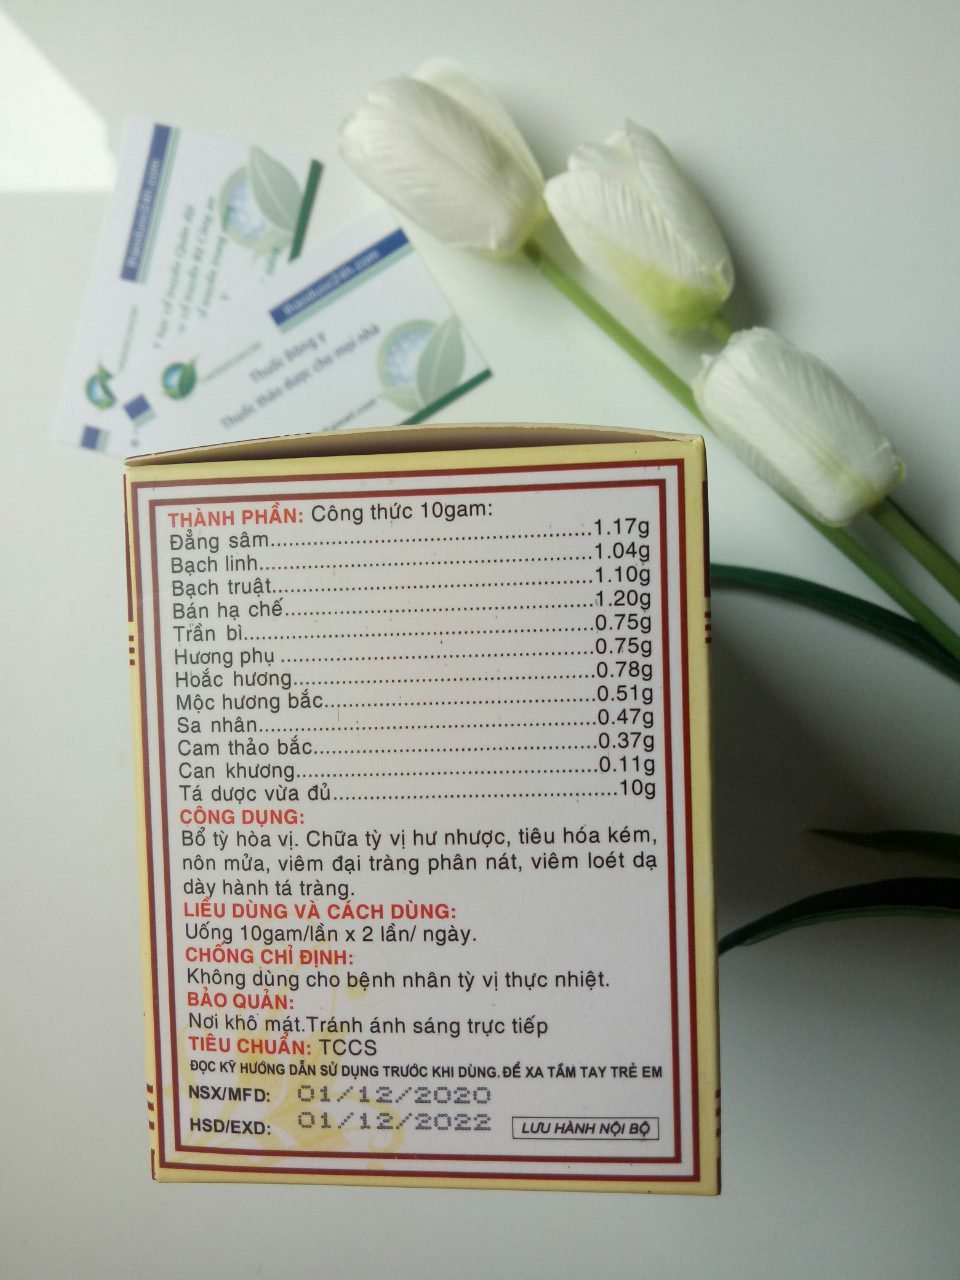 thaoduoc24h.com
thaoduoc24h.com
Thuốc Đông y
Thuốc thảo dược cho mọi nhà
THÀNH PHẦN: Công thức 10gam:
Đảng sâm....................1.17g
Bạch linh....................1.04g
Bạch truật....................1.10g
Bán hạ chế....................1.20g
Trần bì....................0.75g
Hương phụ ....................0.75g
Hoắc hương....................0.78g
Mộc hương bắc....................0.51g
Sa nhân....................0.47g
Cam thảo bắc....................0.37g
Can khương....................0.11g
Tá dược vừa đủ....................10g
CÔNG DỤNG:
Bổ tỳ hòa vị. Chữa tỳ vị hư nhược, tiêu hóa kém,
nôn mửa, viêm đại tràng phân nát, viêm loét dạ
dày hành tá tràng.
LIỀU DÙNG VÀ CÁCH DÙNG:
Uống 10gam/lần x 2 lần/ ngày.
CHỐNG CHỈ ĐỊNH:
Không dùng cho bệnh nhân tỳ vị thực nhiệt.
BẢO QUẢN:
Nơi khô mát.Tránh ánh sáng trực tiếp
TIÊU CHUẨN: TCCS
ĐỌC KỸ HƯỚNG DẪN SỬ DỤNG TRƯỚC KHI DÙNG. ĐỂ XA TẦM TAY TRẺ EM
NSX/MFD: 01/12/2020
HSD/EXD: 01/12/2022
LƯU HÀNH NỘI BỘ